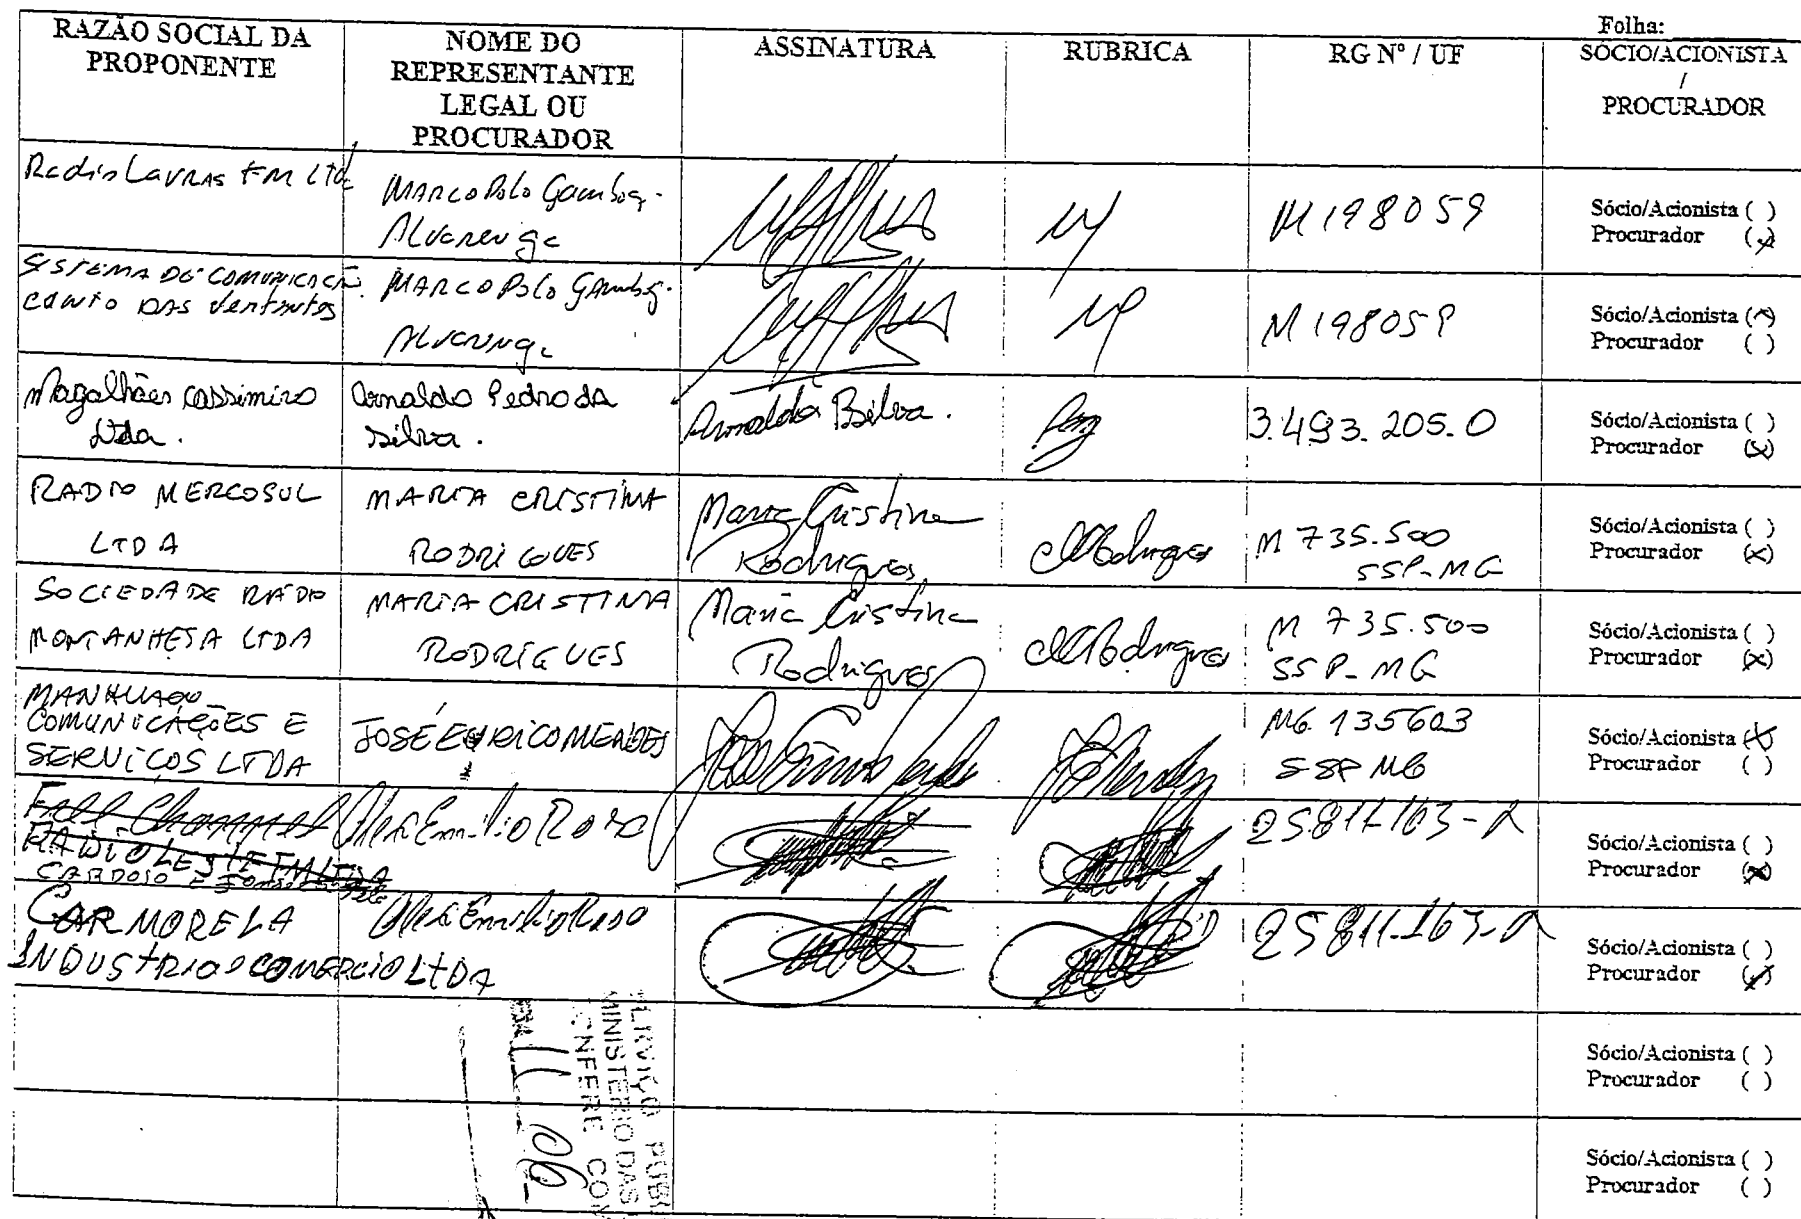 Folha:
RAZÃO SOCIAL DA PROPONENTE
NOME DO REPRESENTANTE LEGAL OU PROCURADOR
ASSINATURA
RUBRICA
RG Nº / UF
SÓCIO/ACIONISTA / PROCURADOR
Radio Lavras FM Ltda
Marco Polo Gamboge-
Alvarenga
M 198059
Sócio/Acionista ( )
Procurador (x)
SISTEMA DE COMUNICAÇÃO
CANTO DAS Vertentes
MARCO Polo Gamboge-
Alvarenga
M 198059
Sócio/Acionista (x)
Procurador ( )
Magalhães Cassimiro
Ltda.
Arnaldo Pedro da
Silva.
Arnaldo PSilva.
3.493.205.0
Sócio/Acionista ( )
Procurador (x)
RADIO MERCOSUL
LTDA
MARIA CRISTINA
RODRIGUES
Maria Cristina
Rodrigues
MRodrigues
M 735.500
SSP-MG
Sócio/Acionista ( )
Procurador (x)
SOCIEDADE RÁDIO
MONTANHESA LTDA
MARIA CRISTINA
RODRIGUES
Maria Cristina
Rodrigues
MRodrigues
M 735.500
SSP-MG
Sócio/Acionista ( )
Procurador (x)
MANHUAÇU
COMUNICAÇÕES E
SERVIÇOS LTDA
JOSÉ EURICO MENDES
MG. 135603
SSP MG
Sócio/Acionista (x)
Procurador ( )
Free Channel
RADIO LESTE FM LTDA
CARDOSO E
Emilio
25811.163-
Sócio/Acionista ( )
Procurador (x)
CARMORELA
INDUSTRIA e COMERCIO LTDA
Emilio
25811.163-
Sócio/Acionista ( )
Procurador (x)
SERVIÇO PUB
MINISTERIO DAS
CONFERE CO
EM 11 06
Sócio/Acionista ( )
Procurador ( )
Sócio/Acionista ( )
Procurador ( )